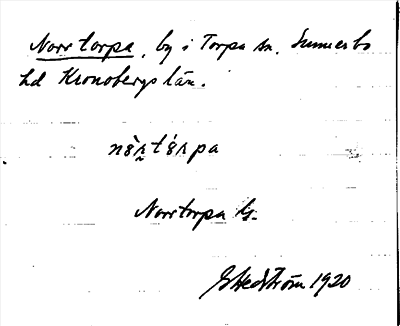 Norrtorpa, by i Torpa sn. Sunnerbo
hd Kronobergs län.
Norrtorpa
GHedström 1920